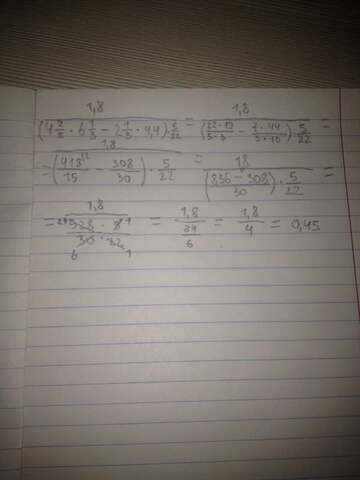 1,8 / ((4 2/5 · 6 1/3 − 2 1/3 · 4,4) · 5/22) = 1,8 / ((22·19 / 5·3 − 7·44 / 3·10) · 5/22) =
= 1,8 / ((418^2 / 15 − 308/30) · 5/22) = 18 / ((836 − 308 / 30) · 5/22) =
= 1,8 / (528 · 5 1 / 30 6 · 22 1) = 1,8 / (24/6) = 1,8/4 = 0,45